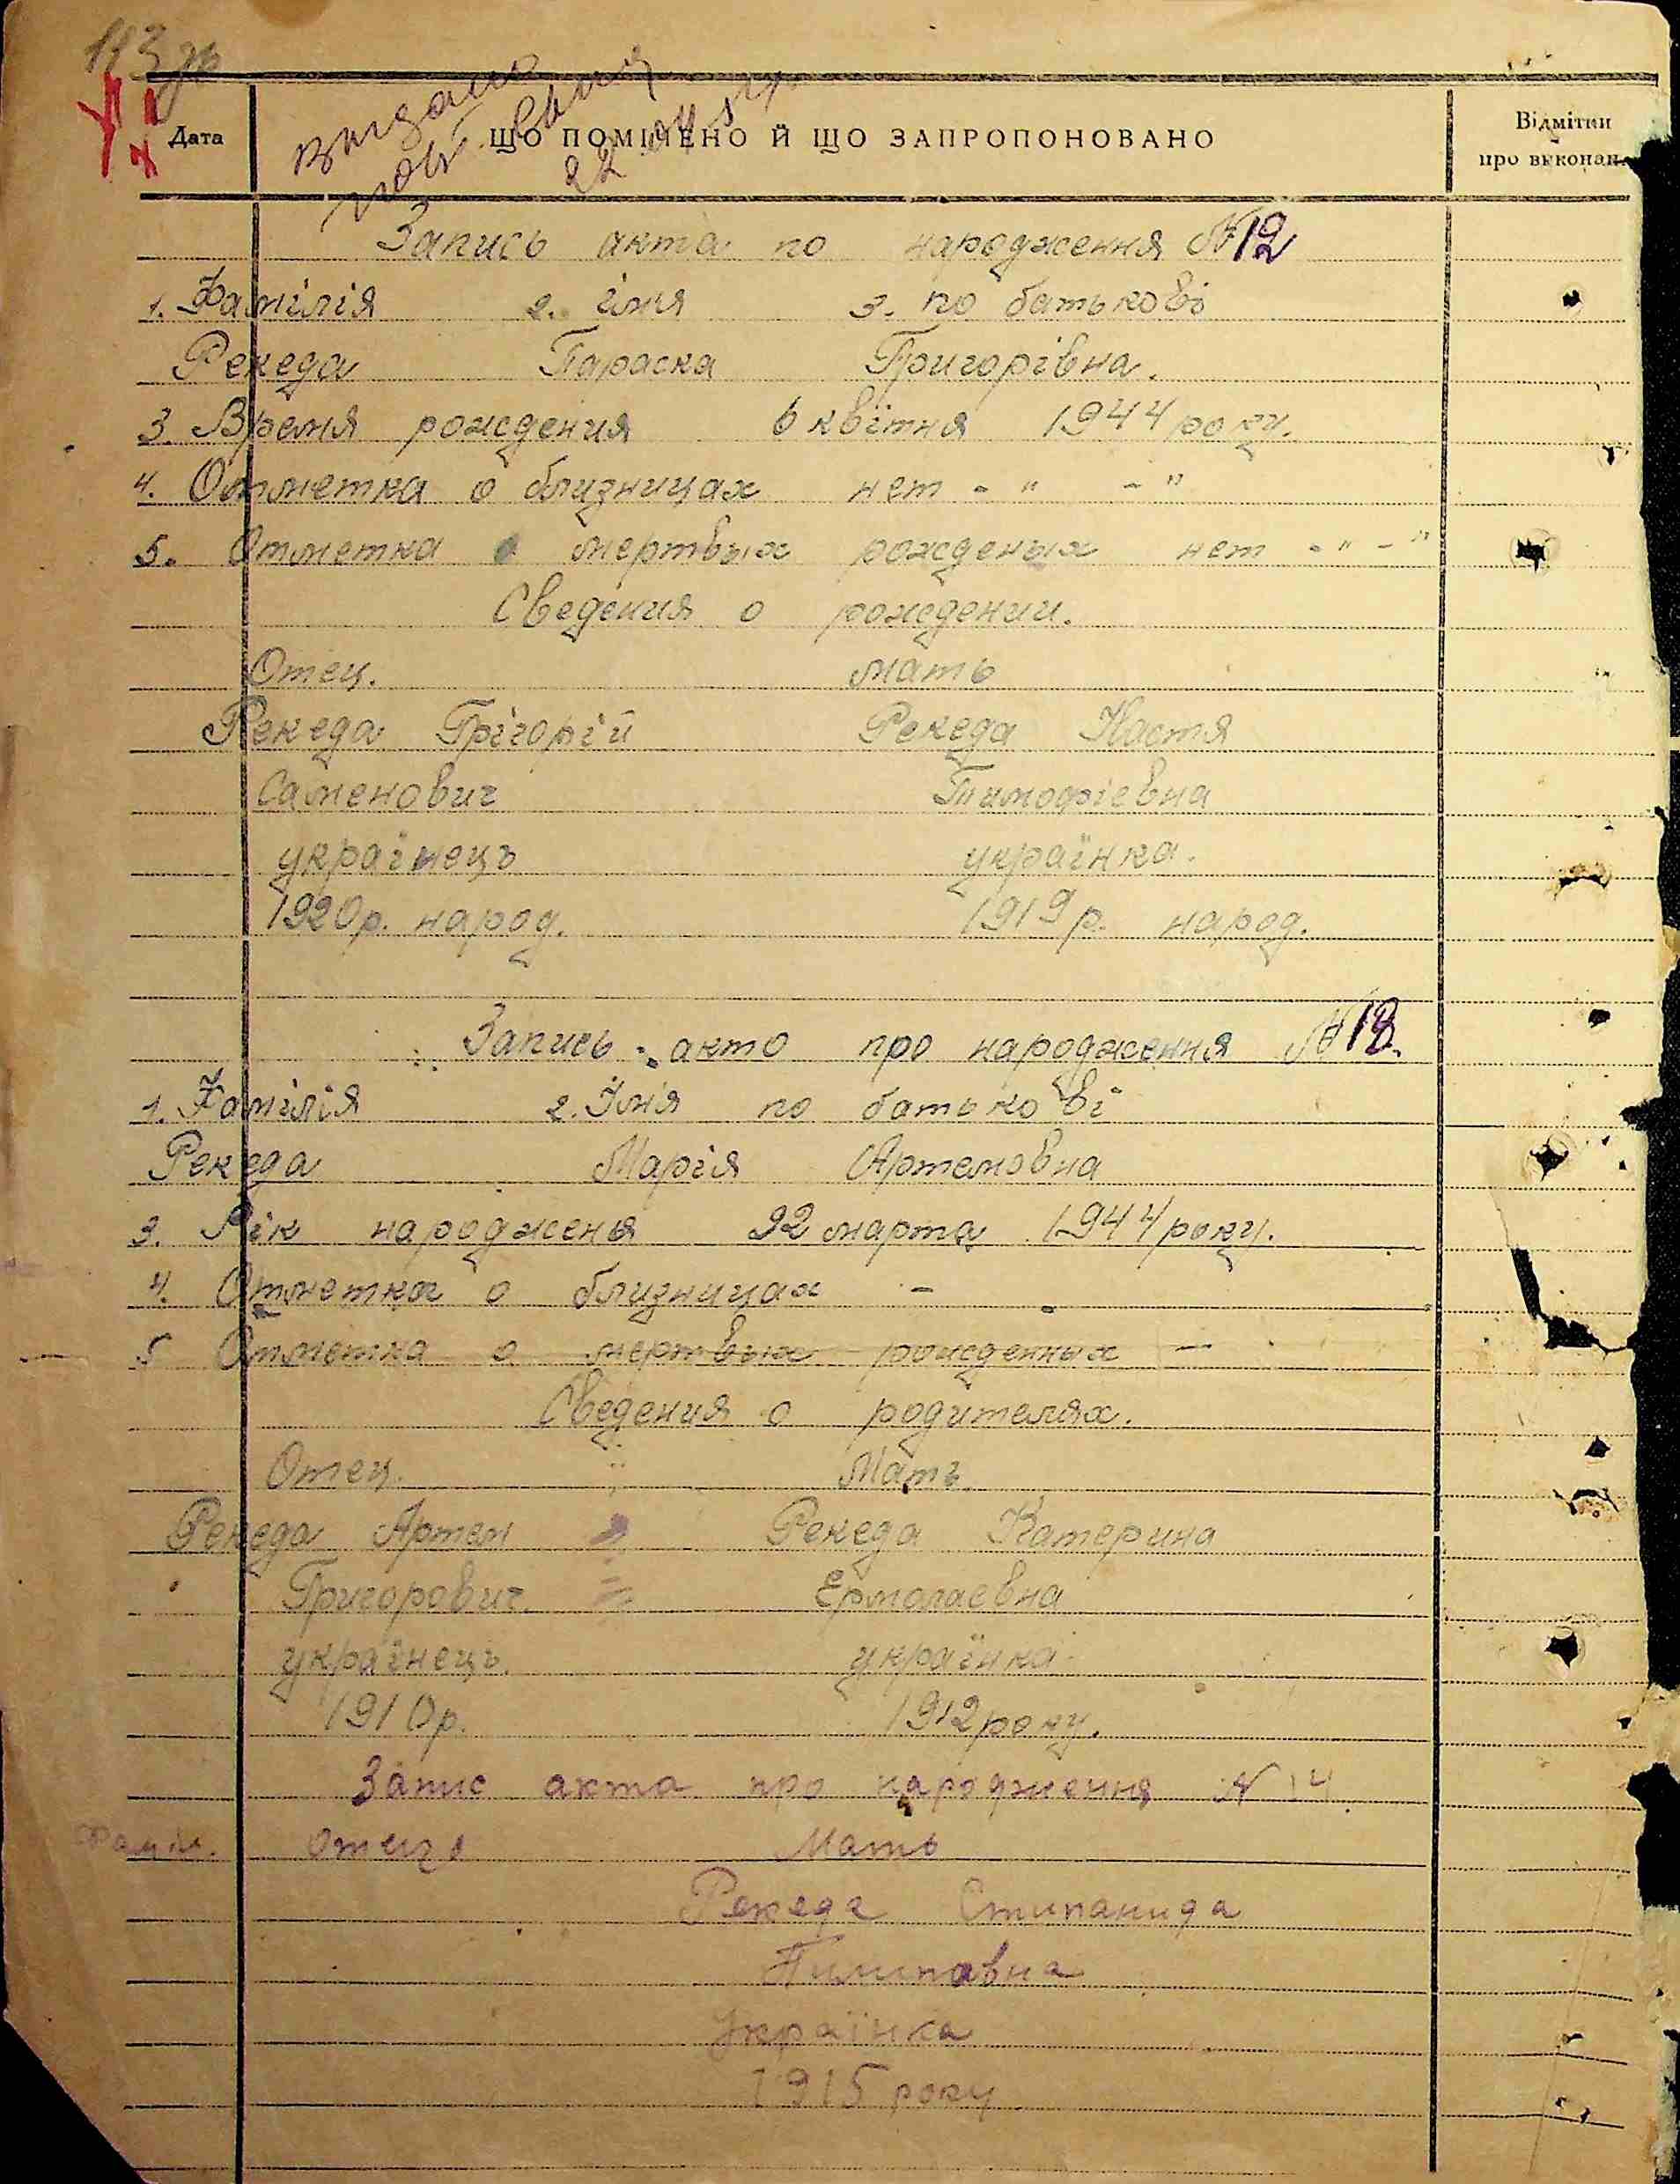 Дата
ЩО ПОМІЧЕНО Й ЩО ЗАПРОПОНОВАНО
Відмітки
про виконан.
видано
Запись акта по народження №12
1. Фамілія 2. імя 3. по батькові
Рекеда Параска Григорівна.
3. Время рождения 6 квітня 1944 року.
4. Отметка о близницах нет - " - "
5. Отметка о мертвых рожденых нет - " - "
Сведения о рождении.
Отец. мать
Рекеда Грігорій Рекеда Настя
Саменович Тимофіевна
українець українка.
1920р. народ. 1919р. народ.
Запись акто про народження №13.
1. Фамілія 2. Імя по батькові
Рекеда Марія Артемовна
3. Рік народженя 22 марта 1944 року.
4. Отметка о близницах -
5 Отметка о мертвых рожденных -
Сведения о родителях.
Отец. Мать
Рекеда Артем Рекеда Катерина
Григорович Ермолаевна
українець. українка
1910р. 1912 року.
Запис акта про народження N 14.
Фаміл. Отець Мать
Рекеда Стипанида
Пилиповна
Українка
1915 року